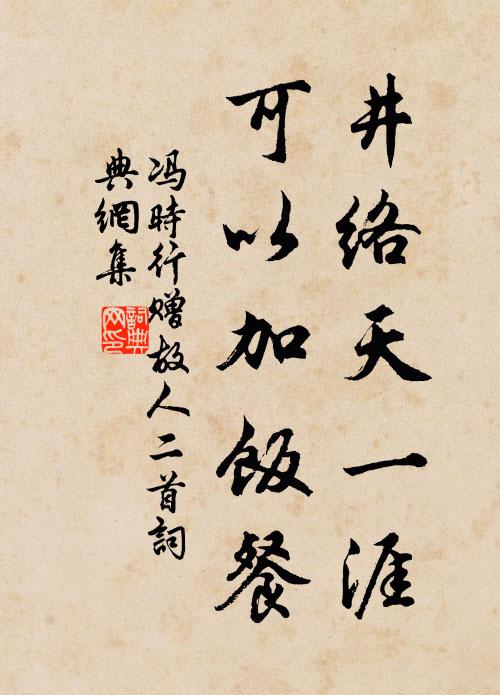 井络天一涯
可以加飯餐
冯時行赠故人二首詞
典網集
詞典网印